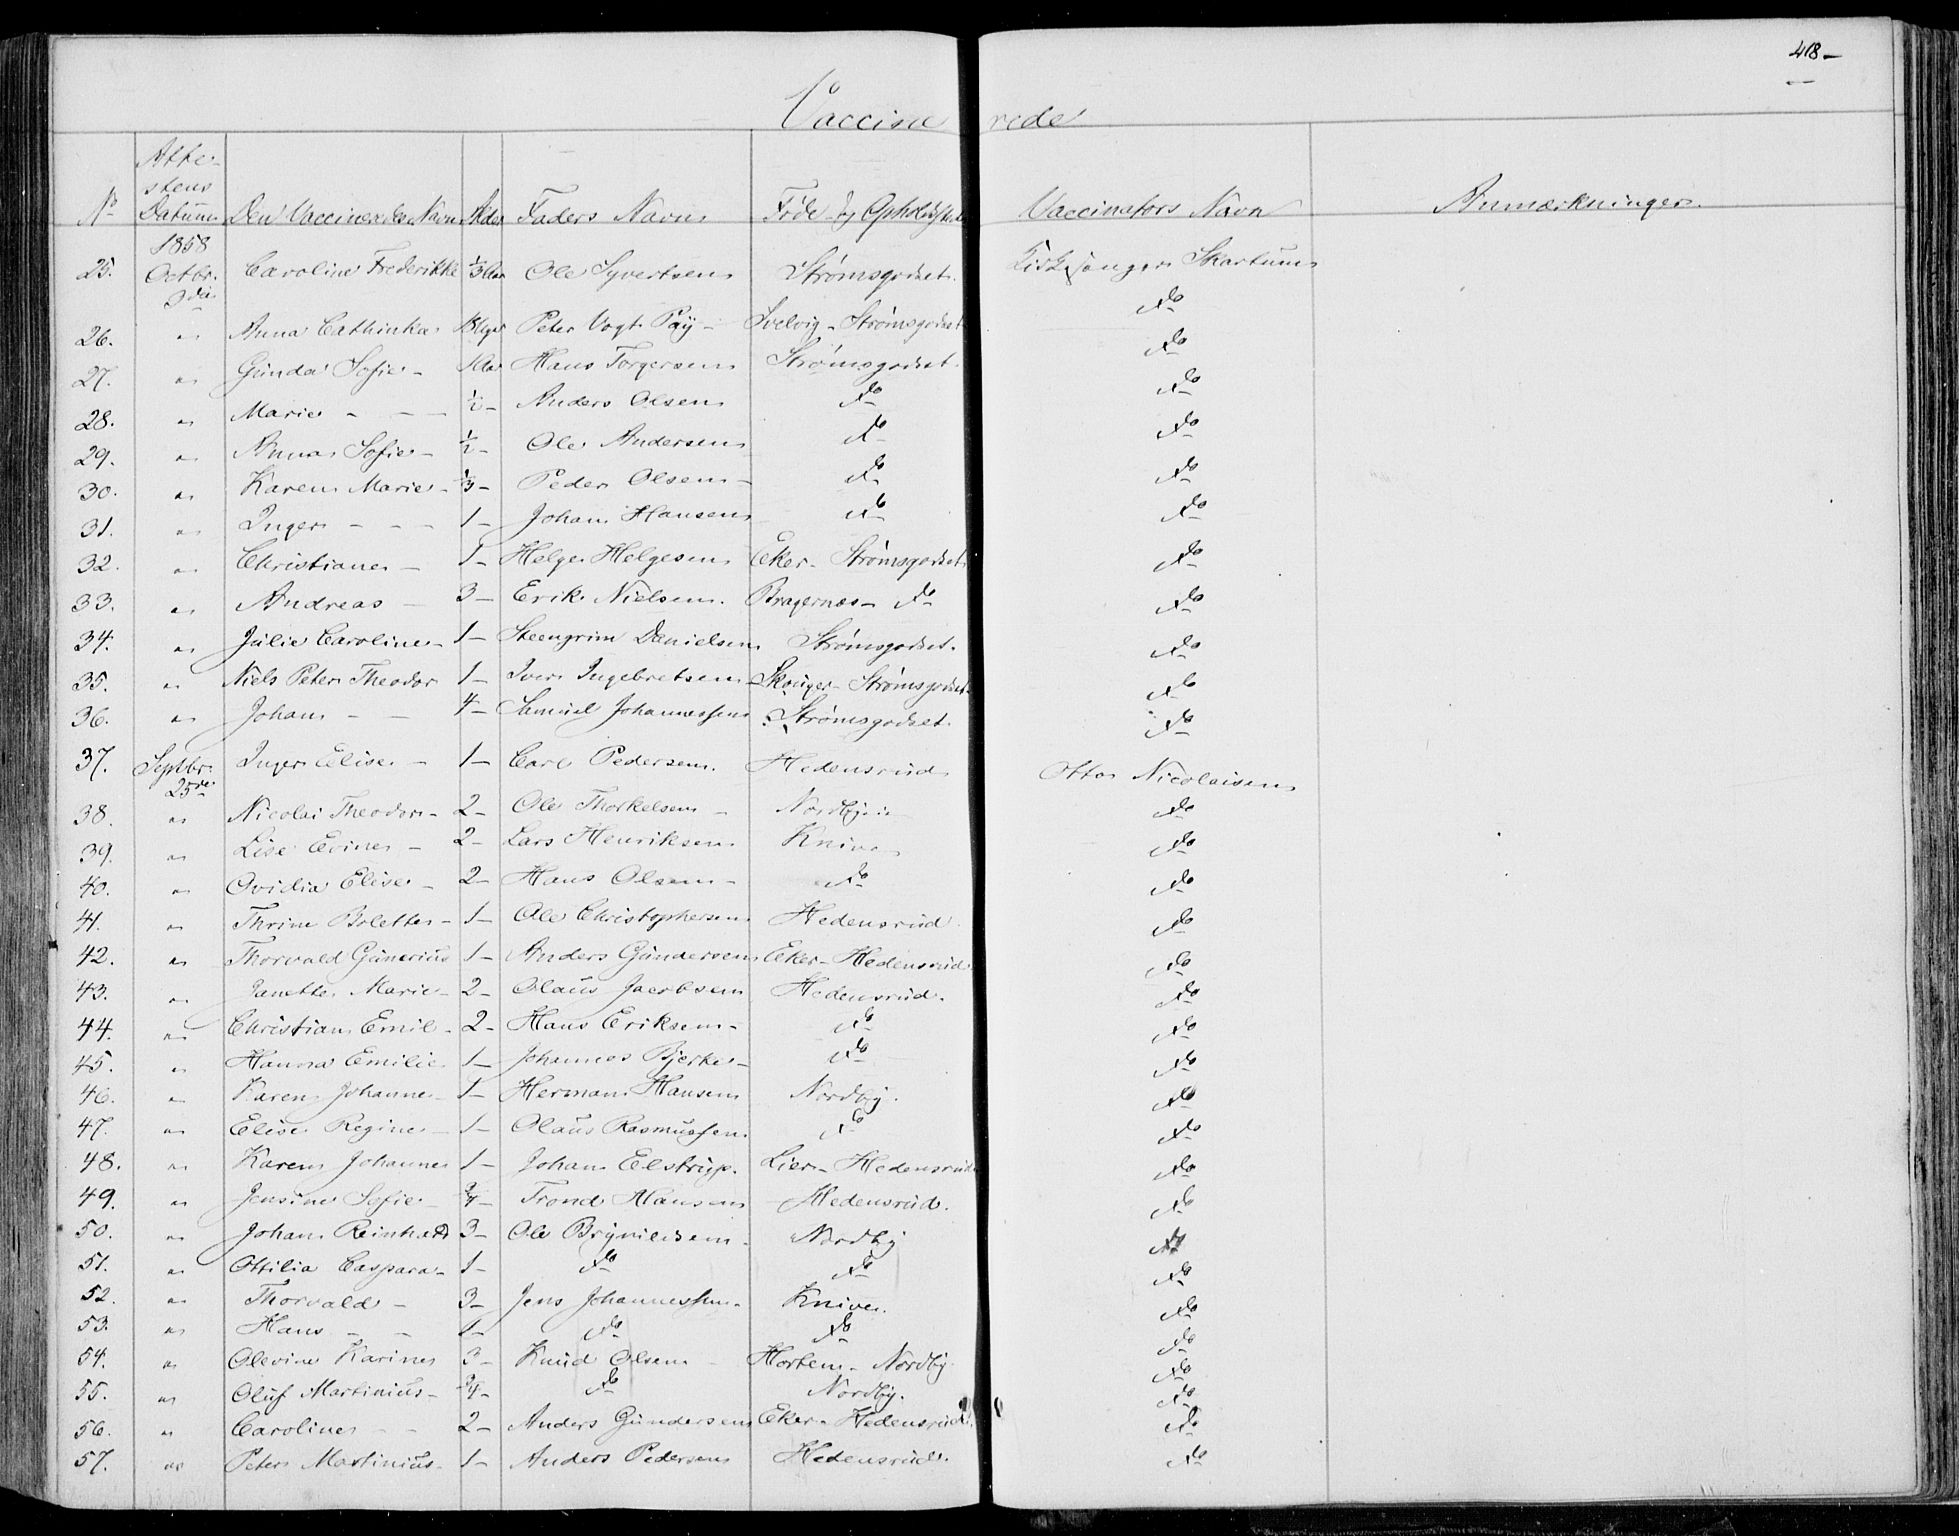 418-
Vaccinerede
No Attestens Datum Den Vaccineredes Navn Alder Faders Navn Føde og Opholdssted Vaccinators Navn Anmærkninger
1858
25. Octbr. 3die Caroline Frederikke 1/3 Aar Ole Syvertsen Strømsgodset. Kirkesanger Skartum
26. " Anna Cathinka Peter Vogt Svelvig - Strømsgodset do
27. " Gunda Sofie - 1 Aar Hans Torgersen Strømsgodset. do
28. " Marie - - - 1/2 - Anders Olsen do do
29. " Anna Sofie - 1/2 - Ole Andersen do do
30. " Karen Marie - 1/3 - Peder Olsen - do do
31. " Inger - - - 1 - Johan Hansen do do
32. " Christiane - 1 - Helge Helgesen Eker - Strømsgodset do
33. " Andreas - 3 - Erik Nielsen. Bragernæs - do do
34. " Julie Caroline - 1 - Steengrim Danielsen Strømsgodset. do
35. " Niels Peter Theodor 1 - Iver Ingebretsen - Skouger - Strømsgodset do
36. " Johan - - 4 - Samuel Johannessen Strømsgodset. do
37. Septbr. 25de Inger Elise - 1 - Carl Pedersen. Hedensrud Otto Nicolaisen
38. " Nicolai Theodor - 2 - Ole Thorkelsen - do
39. " Lise Evine - 2 - Lars Henriksen Knive do
40. " Ovidia Elise - 2 - Hans Olsen - do do
41. " Thrine Bolette - 1 - Ole Christophersen Hedensrud do
42. " Thorvald Gunerius 1 - Anders Gundersen Eker - Hedensrud do
43. " Janette Marie - 2 - Olaus Jacobsen Hedensrud. do
44. " Christian Emil - 2 - Hans Eriksen - do do
45. " Hanna Emilie 1 - Johannes Bjerke - do do
46. " Karen Johanne - 1 - Herman Hansen Nordby. do
47. " Elise Regine - 1 - Olaus Rasmussen do do
48. " Karen Johanne 1 - Johan Elstrup. Lier - Hedensrud do
49. " Jensine Sofie - 3/4 - Trond Hansen Hedensrud. do
50. " Johan Reinhard 3 - Ole Brynildsen - Nordby do
51. " Ottilia Caspara - 1 - do do do
52. " Thorvald - 3 - Jens Johannessen - Knive. do
53. " Hans - - 1 - do do do
54. " Olevine Karine 3 - Knud Olsen - Horten - Nordby. do
55. " Oluf Martinius - 3/4 - do Nordby. do
56. " Caroline - - 2 - Anders Gundersen Eker - Hedensrud. do
57. " Peter Martinius - 1 - Anders Pedersen Hedensrud. do